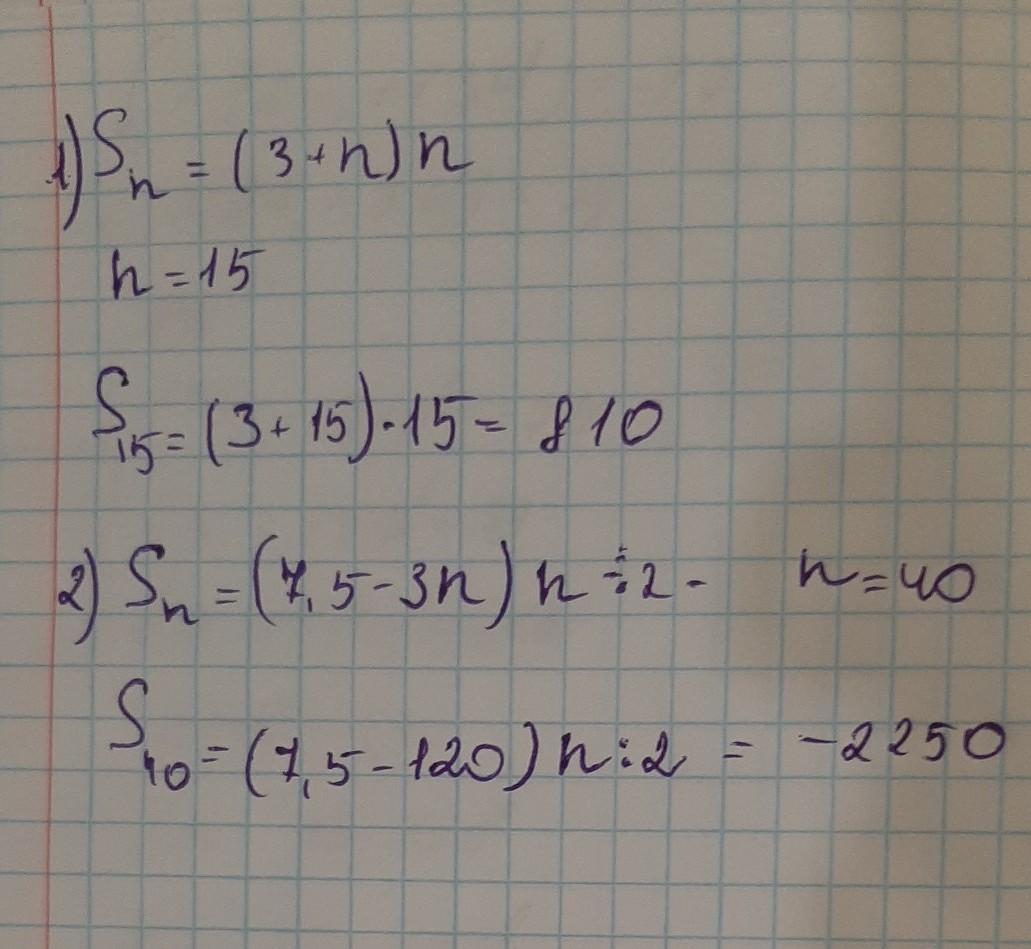 1) Sn = (3 + n) n
n = 15
S15 = (3 + 15) · 15 = 810
2) Sn = (7,5 - 3n) n ÷ 2 - n = 40
S40 = (7,5 - 120) n : 2 = -2250